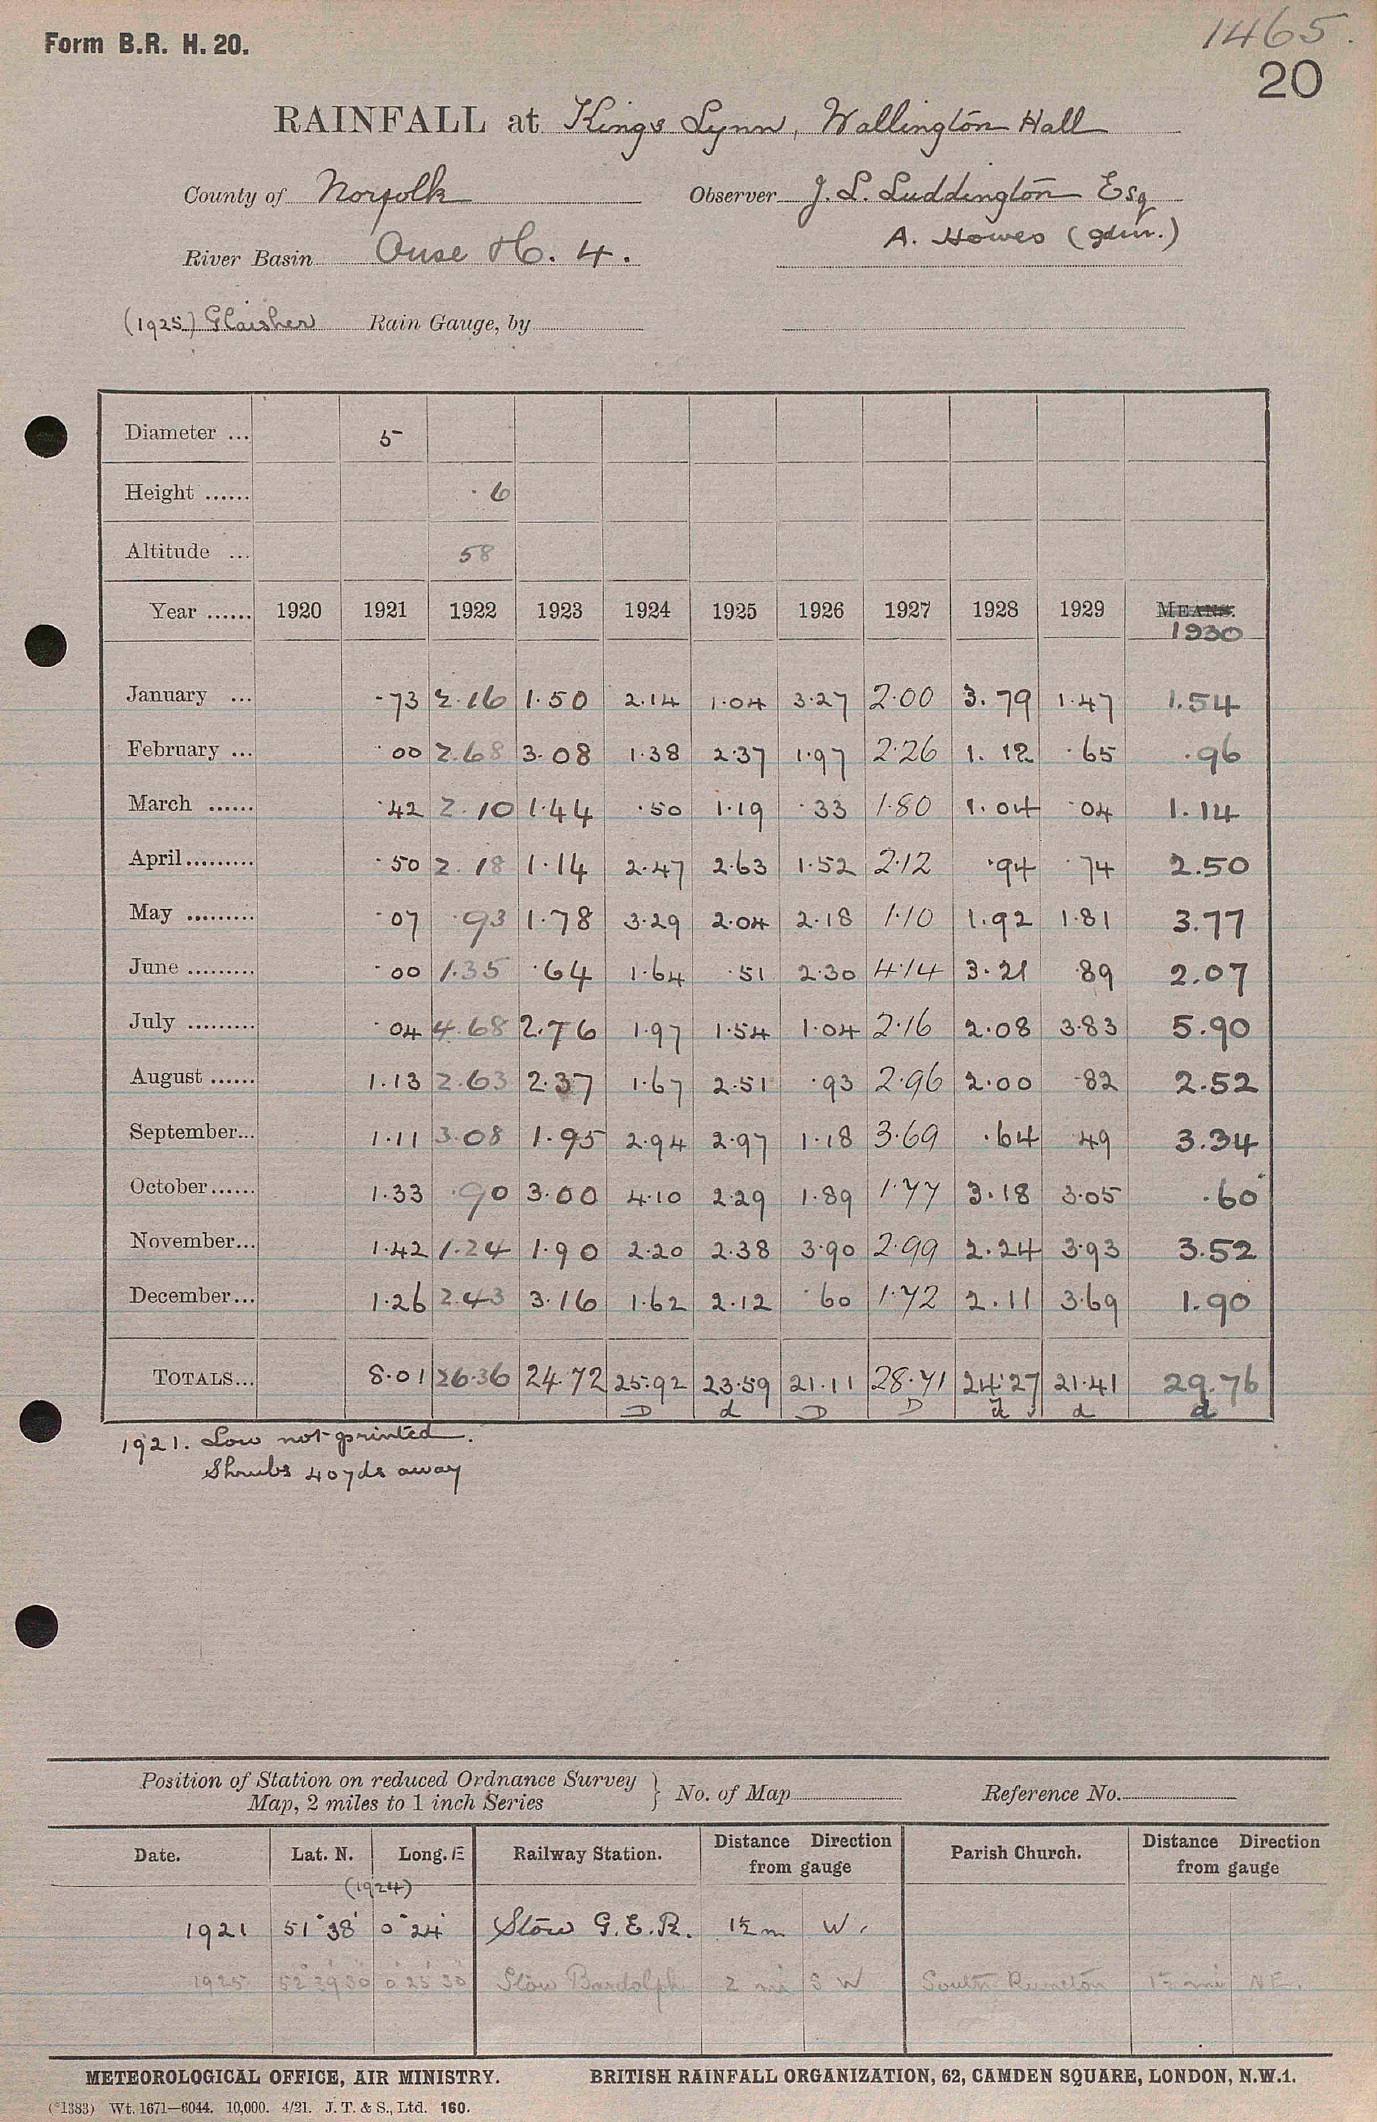 1465.
Form B.R. H. 20.
20
RAINFALL at Kings Lynn, Wallington Hall
County of Norfolk Observer J. L. Luddington Esq
River Basin Ouse H. 4. A. Howes (gdnr.)
(1925) Glaisher Rain Gauge, by
Diameter ... 5
Height ...... ·6
Altitude ... 58
Year ...... 1920 1921 1922 1923 1924 1925 1926 1927 1928 1929 MEANS.
1930
January ... ·73 2.16 1.50 2.14 1.04 3.27 2.00 3.79 1.47 1.54
February ... ·00 2.68 3.08 1.38 2.37 1.97 2.26 1.12 ·65 ·96
March ...... ·42 2.10 1.44 ·50 1.19 ·33 1.80 1.04 ·04 1.14
April ......... ·50 2.18 1.14 2.47 2.63 1.52 2.12 ·94 ·74 2.50
May ......... ·07 ·93 1.78 3.29 2.04 2.18 1.10 1.92 1.81 3.77
June ......... ·00 1.35 ·64 1.64 ·51 2.30 4.14 3.21 ·89 2.07
July ......... ·04 4.68 2.76 1.97 1.54 1.04 2.16 2.08 3.83 5.90
August ...... 1.13 2.63 2.37 1.67 2.51 ·93 2.96 2.00 ·82 2.52
September... 1.11 3.08 1.95 2.94 2.97 1.18 3.69 ·64 ·49 3.34
October...... 1.33 ·90 3.00 4.10 2.29 1.89 1.77 3.18 3.05 ·60
November... 1.42 1.24 1.90 2.20 2.38 3.90 2.99 2.24 3.93 3.52
December... 1.26 2.43 3.16 1.62 2.12 ·60 1.72 2.11 3.69 1.90
TOTALS... 8.01 26.36 24.72 25.92 23.59 21.11 28.71 24.27 21.41 29.76
D d D D d d d
1921. Low not printed.
Shrubs 40 yds away
Position of Station on reduced Ordnance Survey
Map, 2 miles to 1 inch Series } No. of Map Reference No.
Date. Lat. N. Long. E Railway Station. Distance Direction from gauge Parish Church. Distance Direction from gauge
(1924)
1921 51° 38' 0° 24' Stow G.E.R. 1½ m W.
1925 52° 39' 30 0° 25' 30 Stow Bardolph 2 mi S W South Runcton 1½ mi NE.
METEOROLOGICAL OFFICE, AIR MINISTRY. BRITISH RAINFALL ORGANIZATION, 62, CAMDEN SQUARE, LONDON, N.W.1.
(*1383) Wt. 1671—6044. 10,000. 4/21. J. T. & S., Ltd. 160.